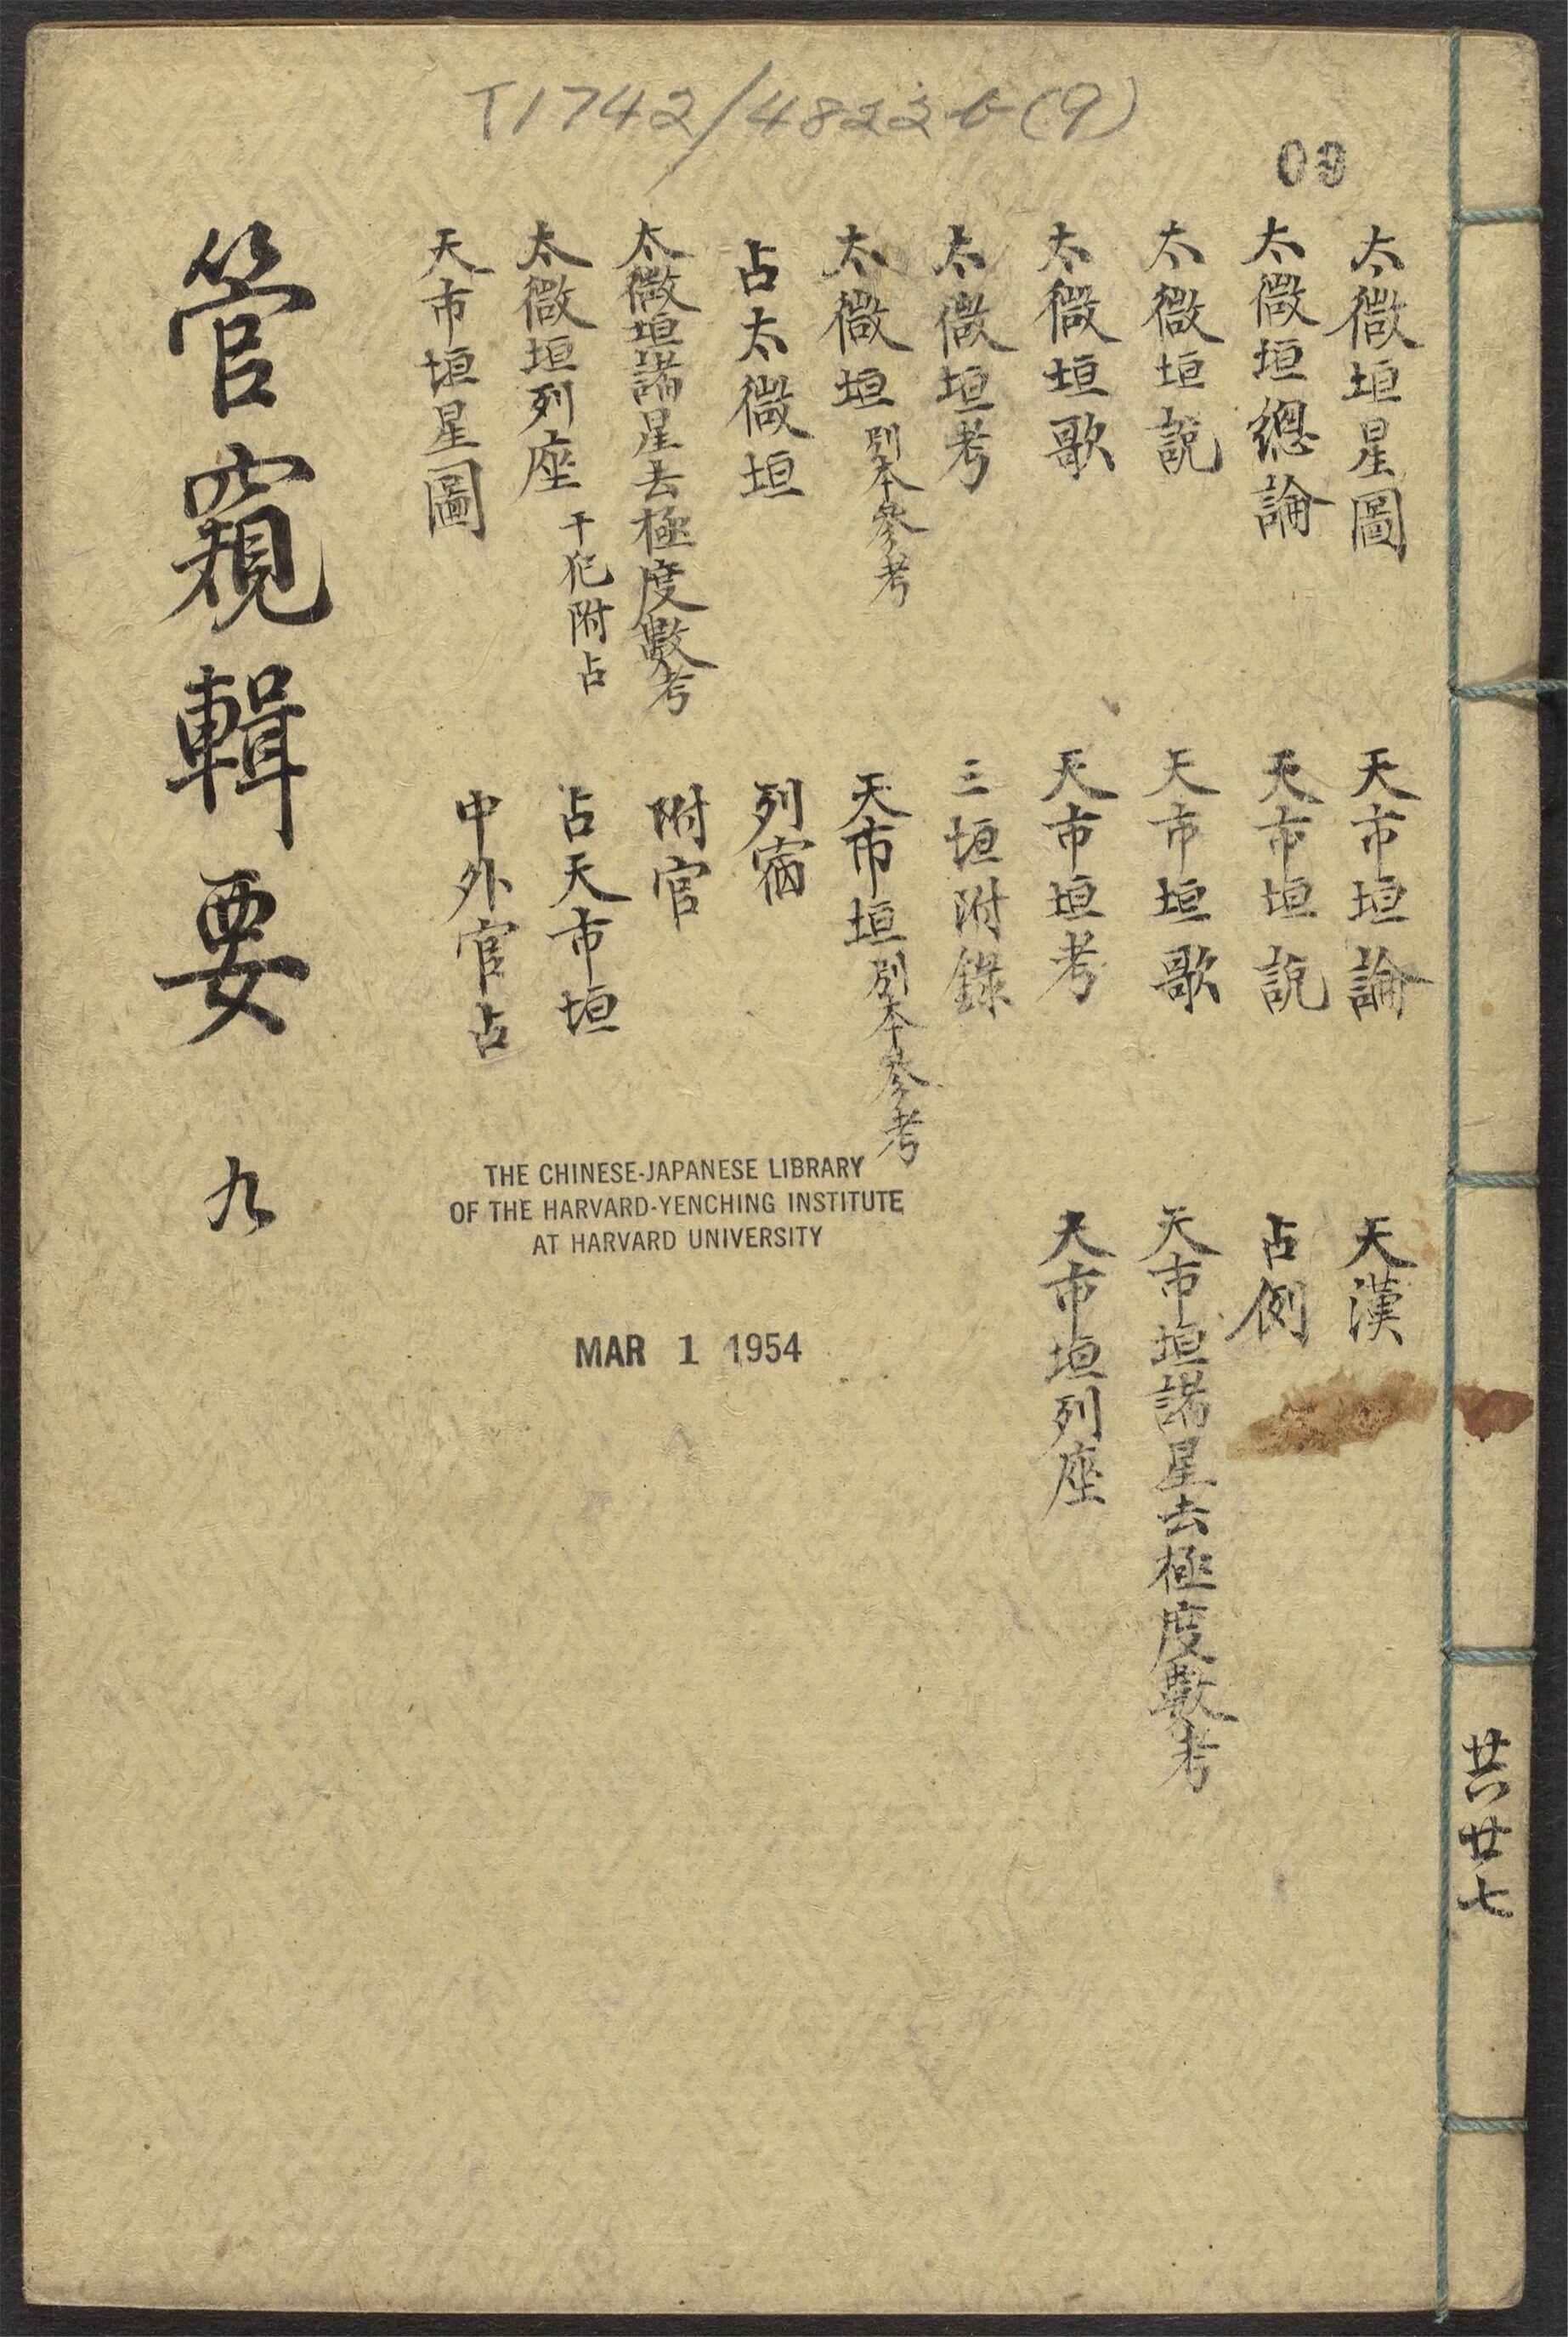 T1742/4822b(9)
09
太微垣星圖
太微垣總論
太微垣說
太微垣歌
太微垣考
太微垣 別本參考
占太微垣
太微垣諸星去極度數考
太微垣列座 干犯附占
天市垣星圖
天市垣論
天市垣說
天市垣歌
天市垣考
三垣附錄
天市垣 別本參考
列宿
附官
占天市垣
中外官占
天漢
占例
天市垣諸星去極度數考
天市垣列座
管窺輯要 九
THE CHINESE-JAPANESE LIBRARY
OF THE HARVARD-YENCHING INSTITUTE
AT HARVARD UNIVERSITY
MAR 1 1954
共廿七